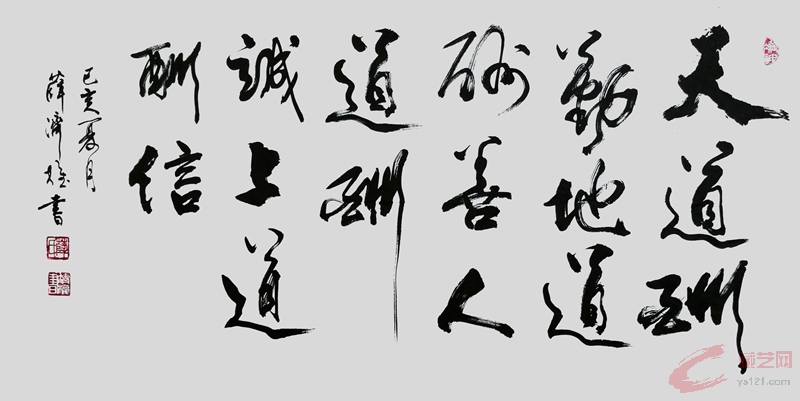 天道酬
勤地道
酬善人
道酬
誠上道
酬信
己亥夏月
薛濟書
艺网
ys121.com